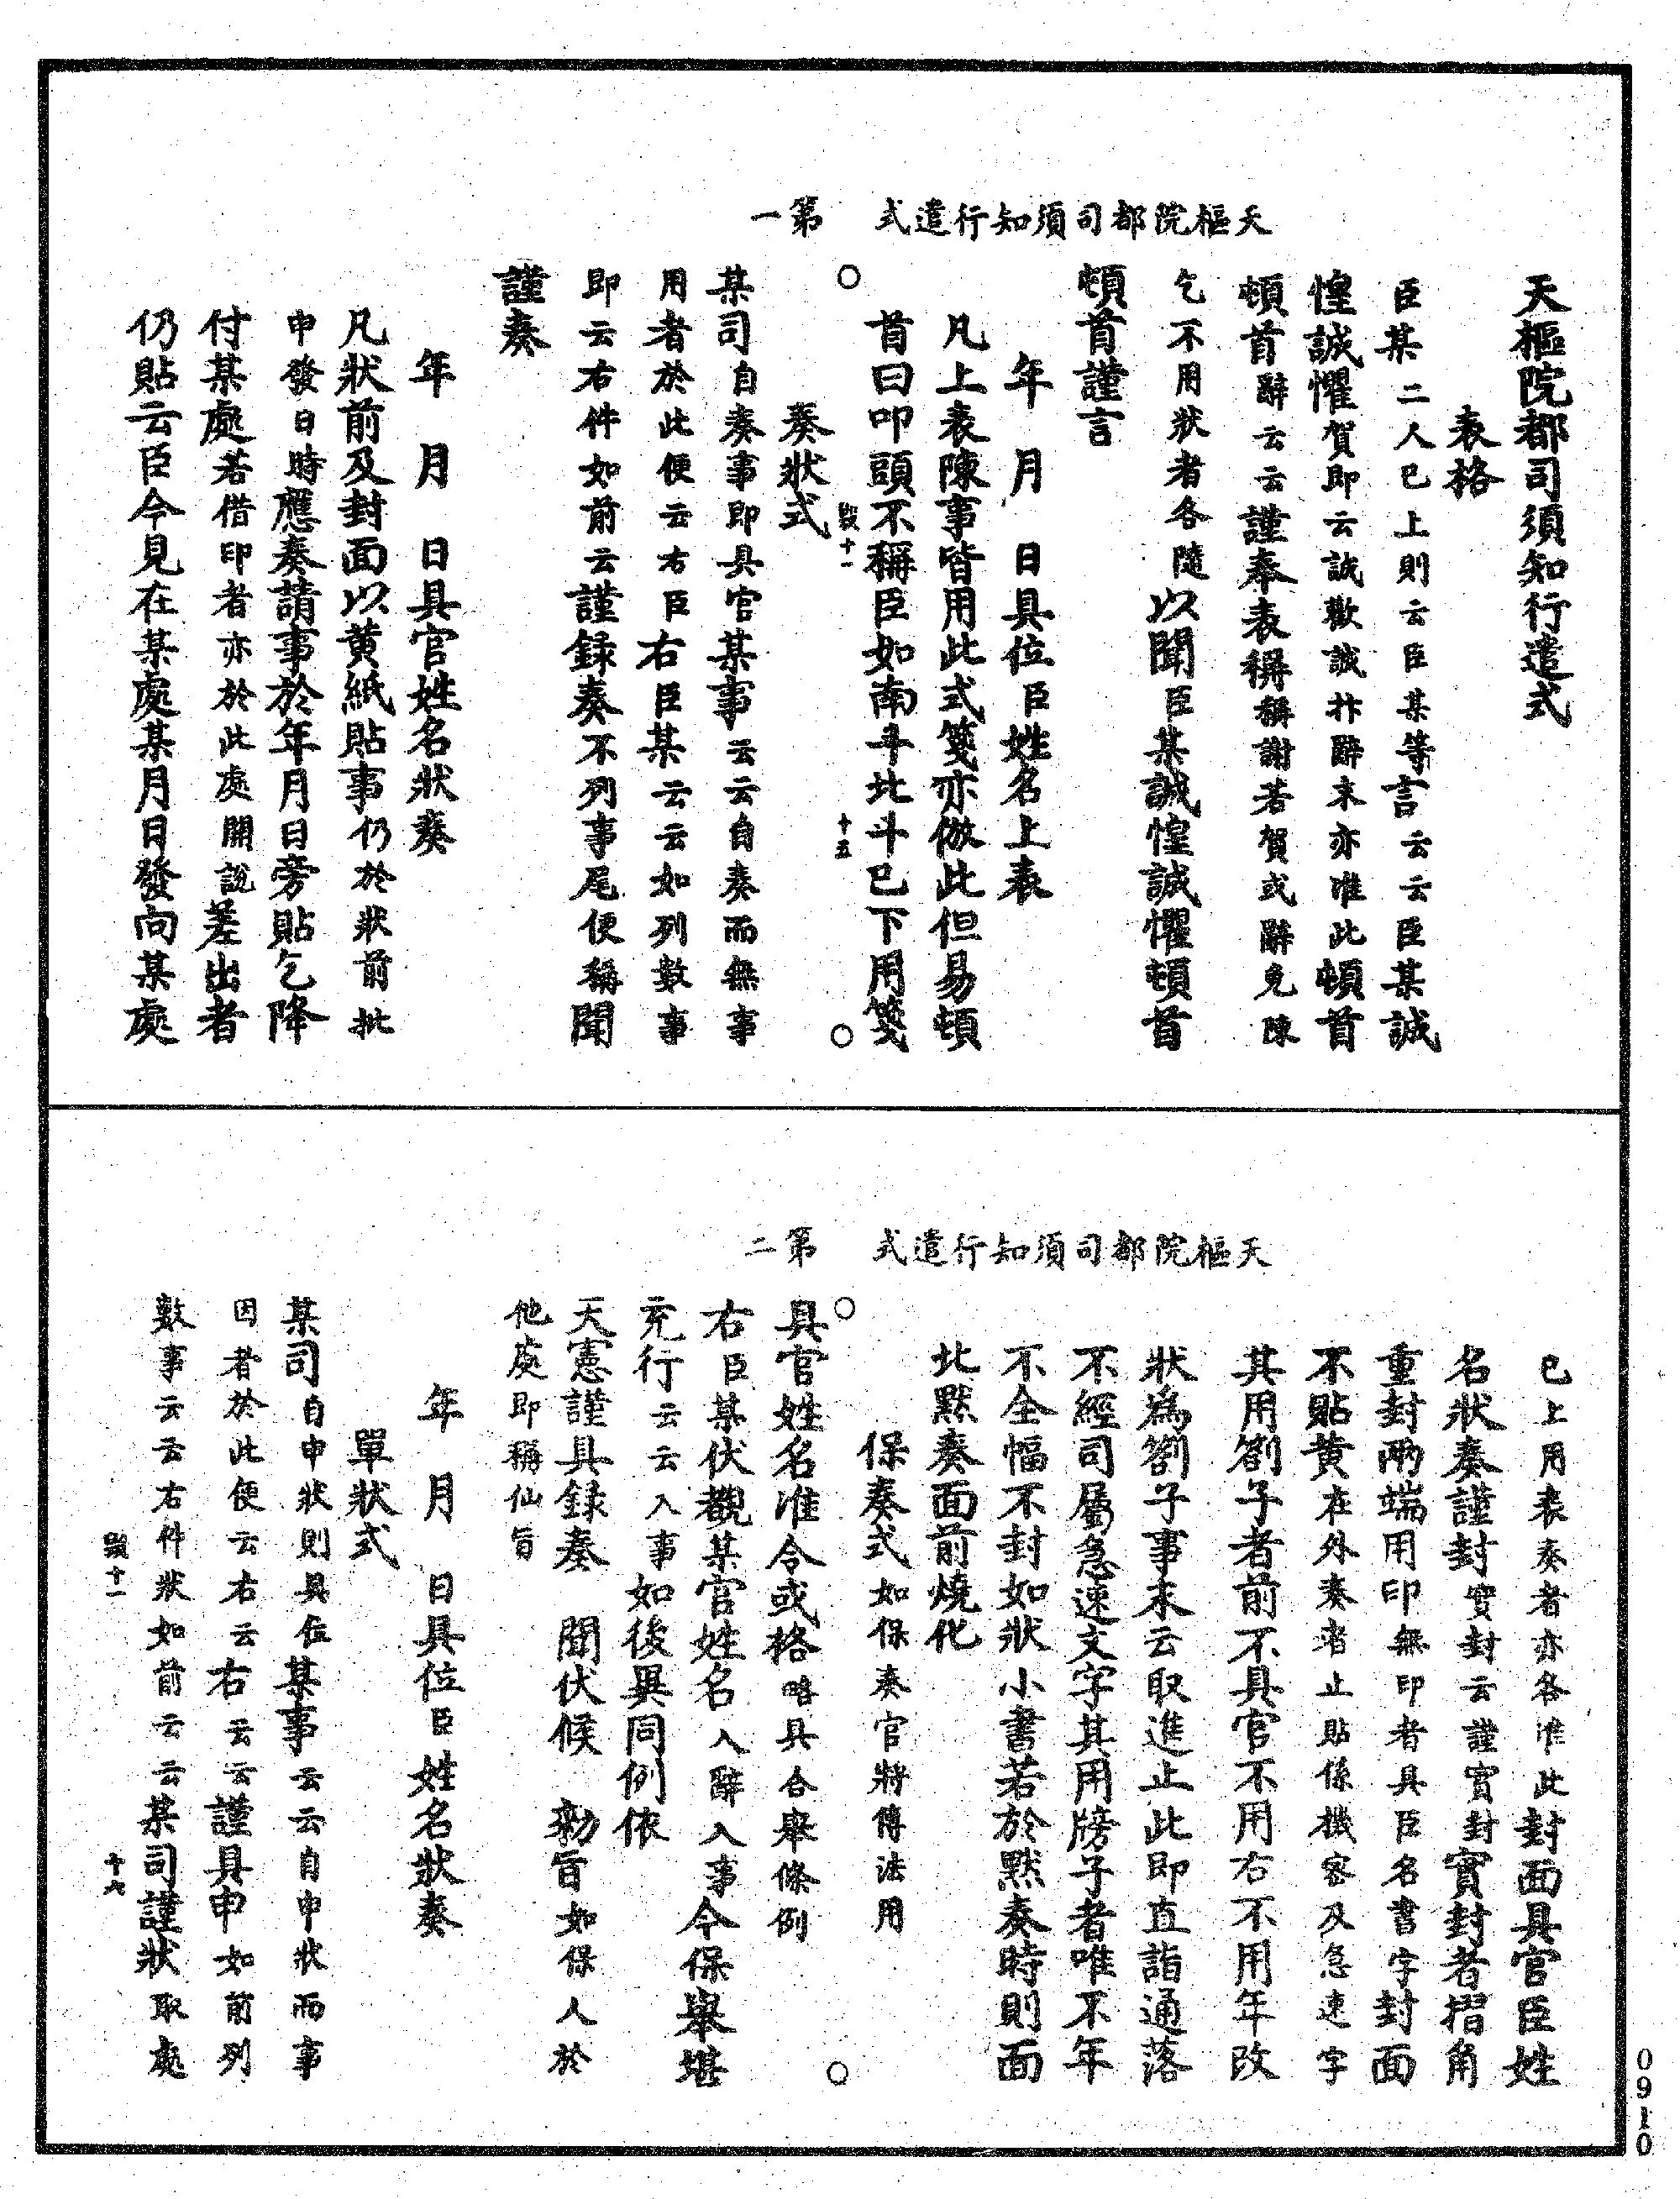 天樞院都司須知行遣式　第一
天樞院都司須知行遣式
表格
臣某二人已上則云臣某等言云云臣某誠
惶誠懼賀即云誠歡誠抃辭末亦准此頓首
頓首辭云云謹奉表稱稱謝若賀或辭免陳
乞不用狀者各隨以聞臣某誠惶誠懼頓首
頓首謹言
年　月　日具位臣姓名上表
凡上表陳事皆用此式箋亦倣此但易頓
首曰叩頭不稱臣如南斗北斗已下用箋
十五
奏狀式
某司自奏事即具官某事云云自奏而無事
用者於此便云右臣右臣某云云如列數事
即云右件如前云謹録奏不列事尾便稱聞
謹奏
年　月　日具官姓名狀奏
凡狀前及封面以黄紙貼事仍於狀前批
申發日時應奏請事於年月日旁貼乞降
付某處若借印者亦於此處開說差出者
仍貼云臣今見在某處某月日發向某處
天樞院都司須知行遣式　第二
已上用表奏者亦各准此封面具官臣姓
名狀奏謹封實封云謹實封實封者摺角
重封兩端用印無印者具臣名書字封面
不貼黄在外奏者止貼係機密及急速字
其用劄子者前不具官不用右不用年改
狀為劄子事末云取進止此即直詣通落
不經司屬急速文字其用牓子者唯不年
不全幅不封如狀小書若於黙奏時則面
北黙奏面前燒化
保奏式如保奏官將傳法用
具官姓名准令或格略具合舉條例
右臣某伏覩某官姓名入辭入事今保舉堪
充行云云入事如後異同例依
天憲謹具録奏　聞伏候　勑旨如保人於
他處即稱仙旨
年　月　日具位臣姓名狀奏
單狀式
某司自申狀則具位某事云云自申狀而事
因者於此便云右云右云云謹具申如前列
數事云云右件狀如前云云某司謹狀取處
十七
0910